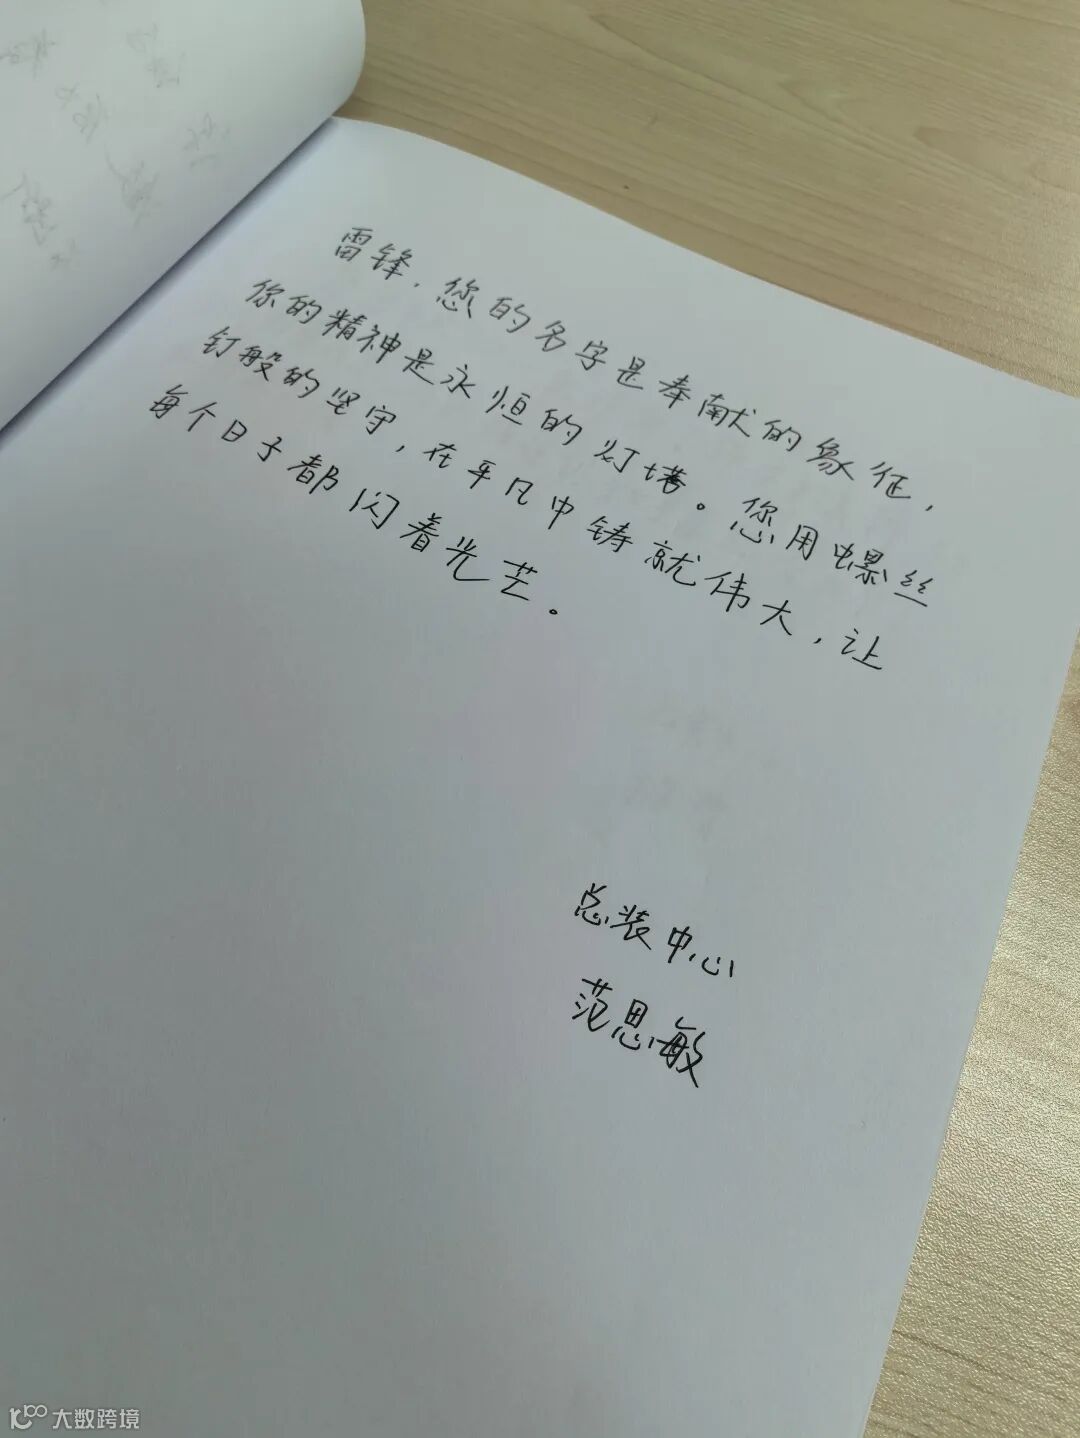 雷锋，您的名字是奉献的象征，
你的精神是永恒的灯塔。您用螺丝
钉般的坚守，在平凡中铸就伟大，让
每个日子都闪着光芒。
总装中心
范思敏
大数跨境